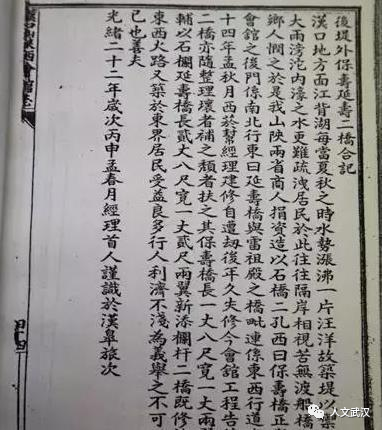 後堤外保壽延壽二橋合記
漢口地方面江背湖每當夏秋之時水勢漲沸一片汪洋故築堤以禦
大雨滂沱内濠之水更難疏洩居民於此往往隔岸相視苦無渡船橋
鄉人憫之於是我山陝兩省商人捐資造以石橋二孔西曰保壽橋正
會館之後門係南北行東曰延壽橋與雷祖殿之橋毗連係東西行道
十四年孟秋月西於幫經理建修自遭刼後年久失修今會館工程告
二橋亦隨整理壞者補之頽者扶之其保壽橋長一丈八尺寬一丈兩
輔以石欄延壽橋長貳丈八尺寬一丈貳尺兩翼新添欄杆二橋既修
東西火路又築於東界居民受益良多行人利濟不淺為義舉之不可
已也善夫
光緒二十二年歲次丙申孟春月經理首人謹識於漢皋旅次
西會館
人文武汉